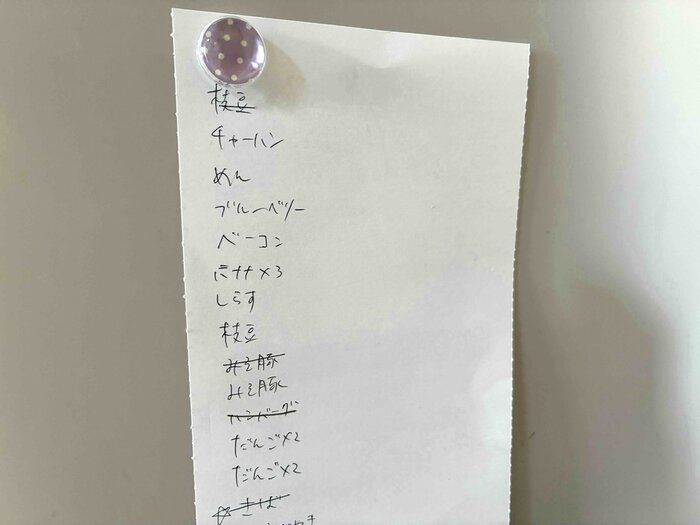 枝豆
チャーハン
めん
ブルーベリー
ベーコン
バナナ×3
しらす
枝豆
みそ豚
みそ豚
ハンバーグ
だんご×2
だんご×2
さば